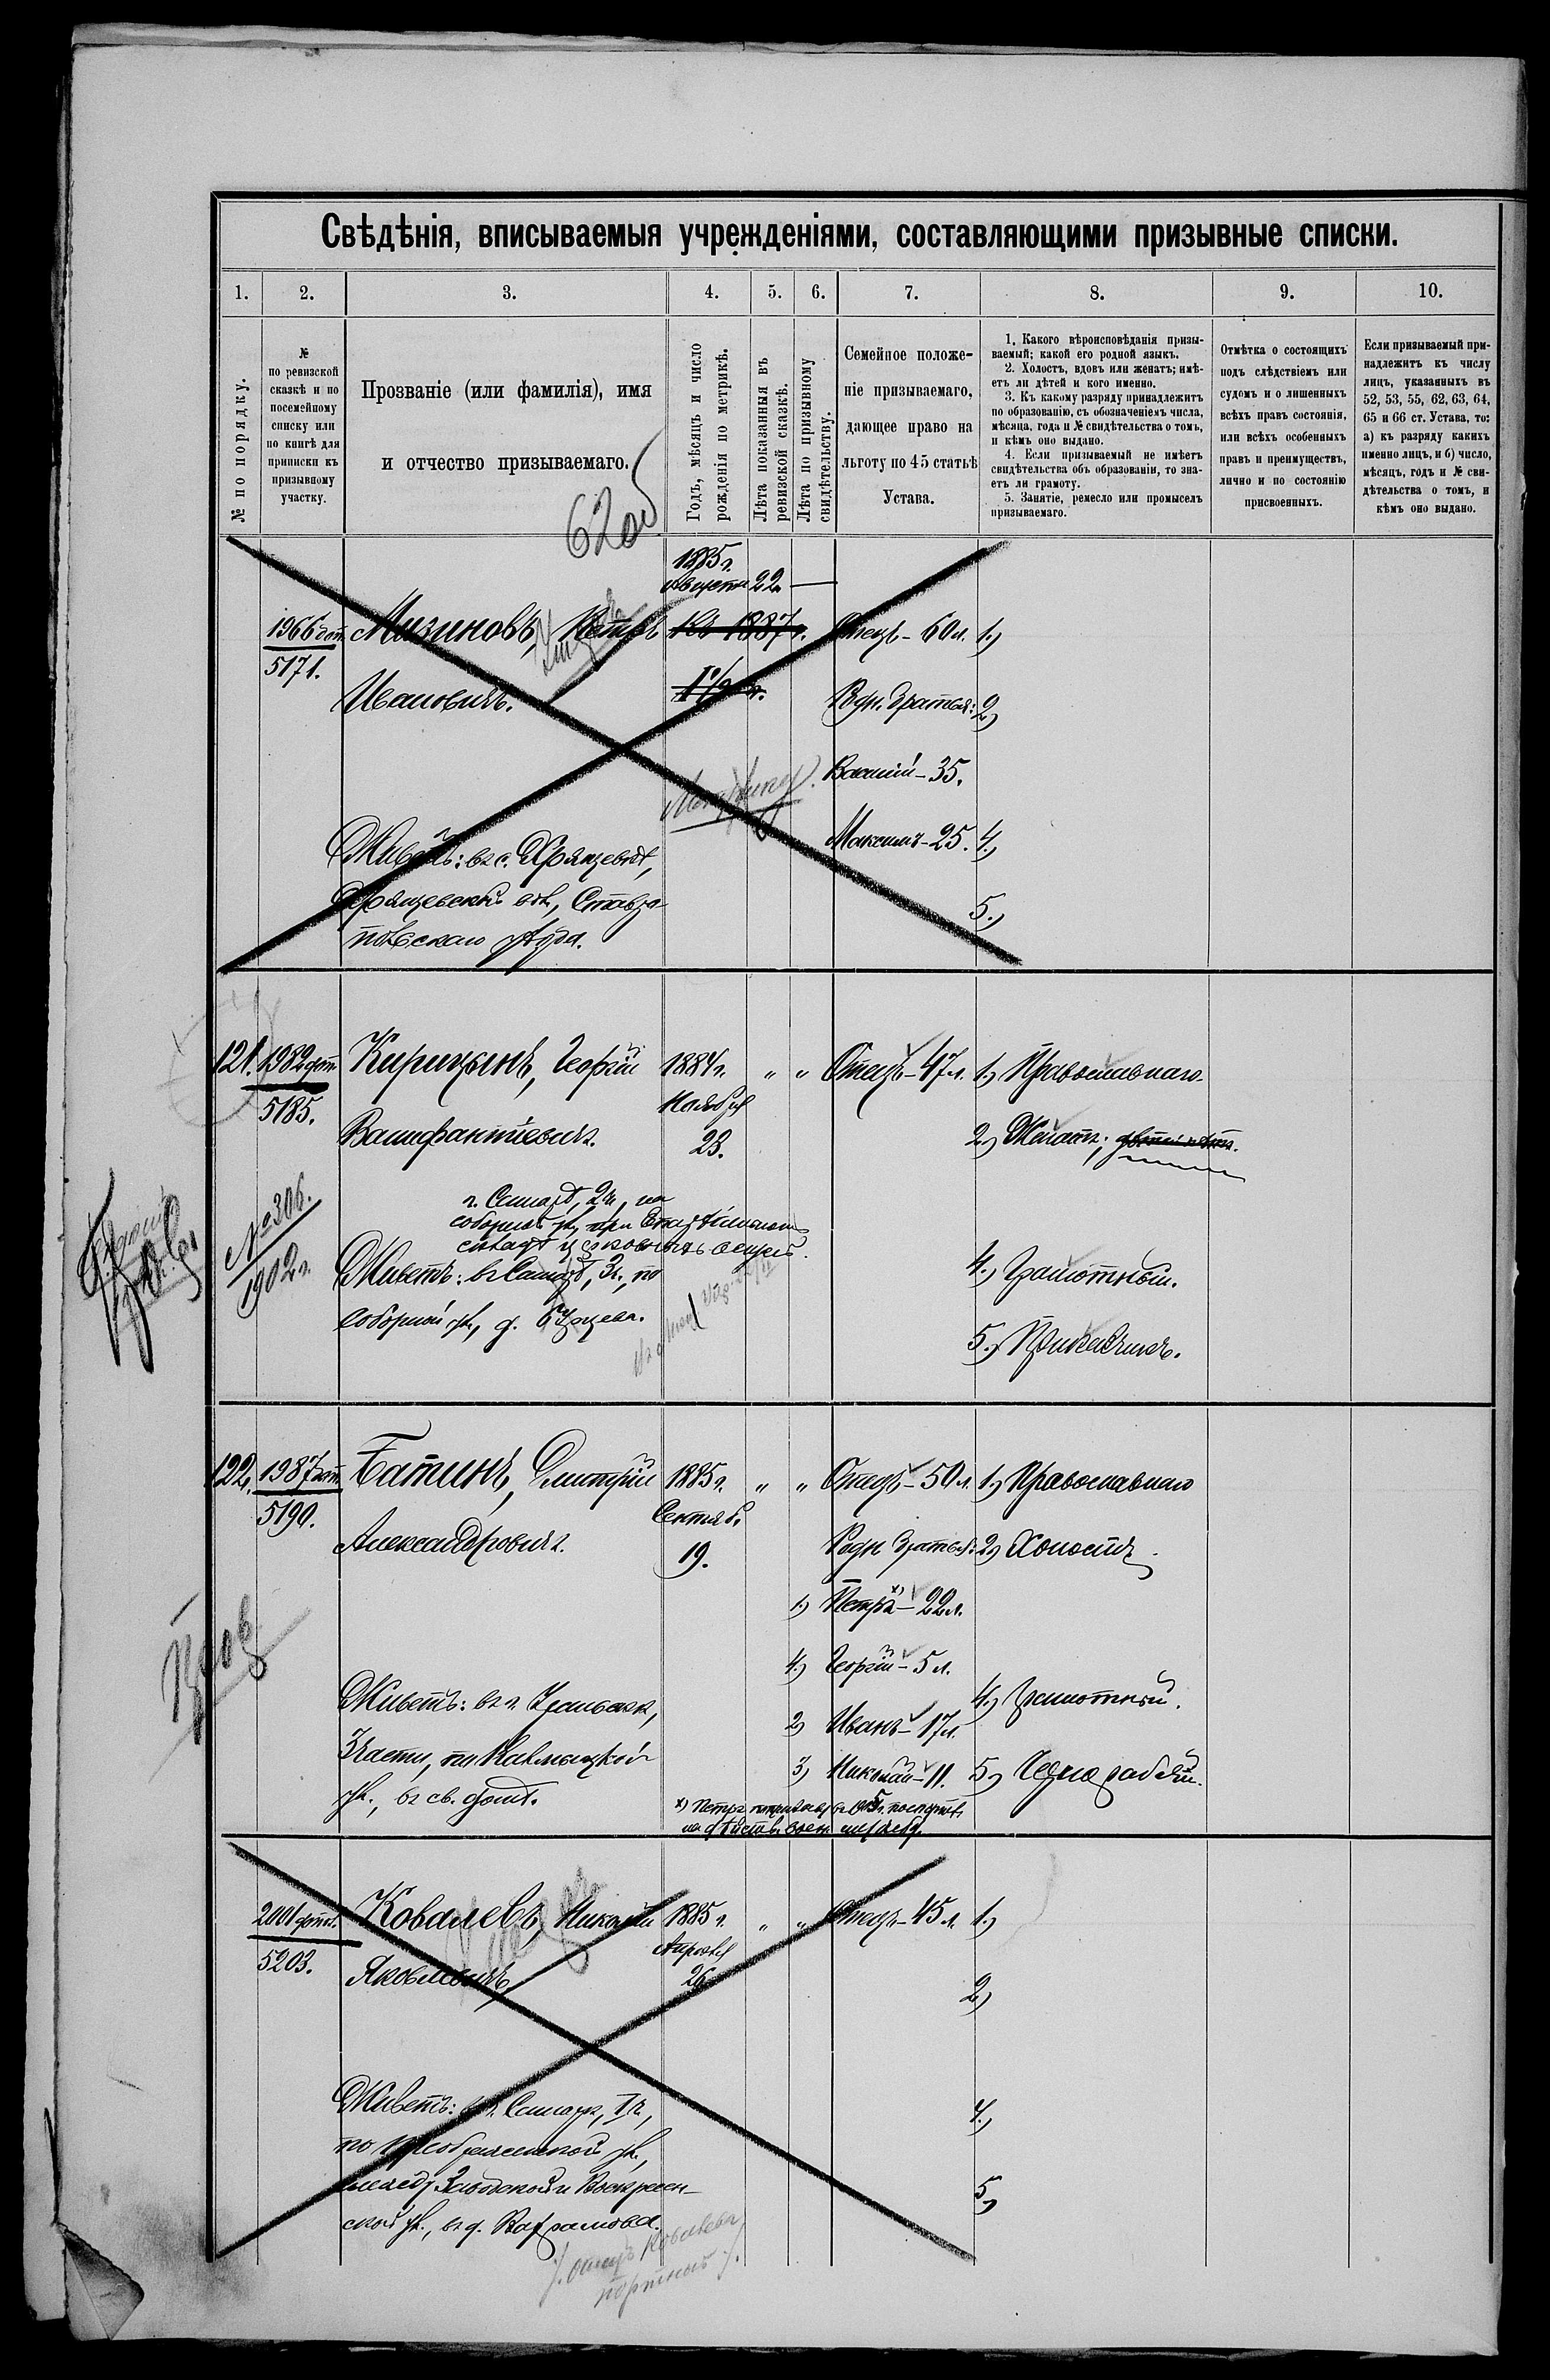 Свѣдѣнія, вписываемыя учрежденіями, составляющими призывные списки.
1. 2. 3. 4. 5. 6. 7. 8. 9. 10.
№ по порядку.
№
по ревизской
сказкѣ и по
посемейному
списку или
по книгѣ для
приписки къ
призывному
участку.
Прозваніе (или фамилія), имя
и отчество призываемаго.
Годъ, мѣсяцъ и число
рожденія по метрикѣ.
Лѣта показанныя въ
ревизской сказкѣ.
Лѣта по призывному
свидѣтельству.
Семейное положе-
ніе призываемаго,
дающее право на
льготу по 45 статьѣ
Устава.
1. Какого вѣроисповѣданія призы-
ваемый; какой его родной языкъ.
2. Холостъ, вдовъ или женатъ; имѣ-
етъ ли дѣтей и кого именно.
3. Къ какому разряду принадлежитъ
по образованію, съ обозначеніемъ числа,
мѣсяца, года и № свидѣтельства о томъ,
и кѣмъ оно выдано.
4. Если призываемый не имѣетъ
свидѣтельства объ образованіи, то зна-
етъ ли грамоту.
5. Занятіе, ремесло или промыселъ
призываемаго.
Отмѣтка о состоящихъ
подъ слѣдствіемъ или
судомъ и о лишенныхъ
всѣхъ правъ состоянія,
или всѣхъ особенныхъ
правъ и преимуществъ,
лично и по состоянію
присвоенныхъ.
Если призываемый при-
надлежитъ къ числу
лицъ, указанныхъ въ
52, 53, 55, 62, 63, 64,
65 и 66 ст. Устава, то:
а) къ разряду какихъ
именно лицъ, и б) число,
мѣсяцъ, годъ и № сви-
дѣтельства о томъ, и
кѣмъ оно выдано.
62об
1885 г.
Августа 22 —
1966 Мизиновъ, Петръ 1887 г. Отецъ - 60 л. 1.)
5171.
Ивановичъ. Род. братья: 2)
Василій - 35.
Максимъ - 25. 4.)
Живетъ: въ с. Хрящевкѣ,
Хрящевской вол., Ставро-
польскаго уѣзда.
5.)
121. 1982 Кирицынъ, Георгій 1884 г. " " Отецъ - 47 л. 1.) Православнаго
5185. Ноября
Вонифантіевичъ. 23. 2.) Женатъ; дѣтей нѣтъ.
г. Самара, 2 ч., на
№ 306.
1902 г.
Живетъ: въ Самарѣ, 3 ч., по
Соборной ул., д.
4.) Грамотный.
5.) Прикащикъ.
122. 1987 Батинъ, Дмитрій 1885 г. " " Отецъ - 50 л. 1.) Православнаго
5190. Сентяб.
Александровичъ. 19. Родн. братья: 2.) Холостъ.
1.) Петръ x) - 22 л.
4.) Георгій - 5 л.
Живетъ: въ г. Уральскѣ, 4.) Грамотный.
2) Иванъ - 17 л.
3 части, по Калмыцкой
3) Николай - 11. 5.) Чернорабочій.
ул., въ св. домѣ.
x) Петръ
2001 Ковалевъ, Николай 1885 г. " " Отецъ - 45 л. 1.)
5203. Апрѣля
Яковлевичъ 26 2.)
Живетъ: въ г. Самарѣ, 1 ч., 4.)
по Преображенской ул.,
между Заводской и Воскресен-
5.)
ской ул., въ д. Вахрамова.
отецъ Ковалева
портной